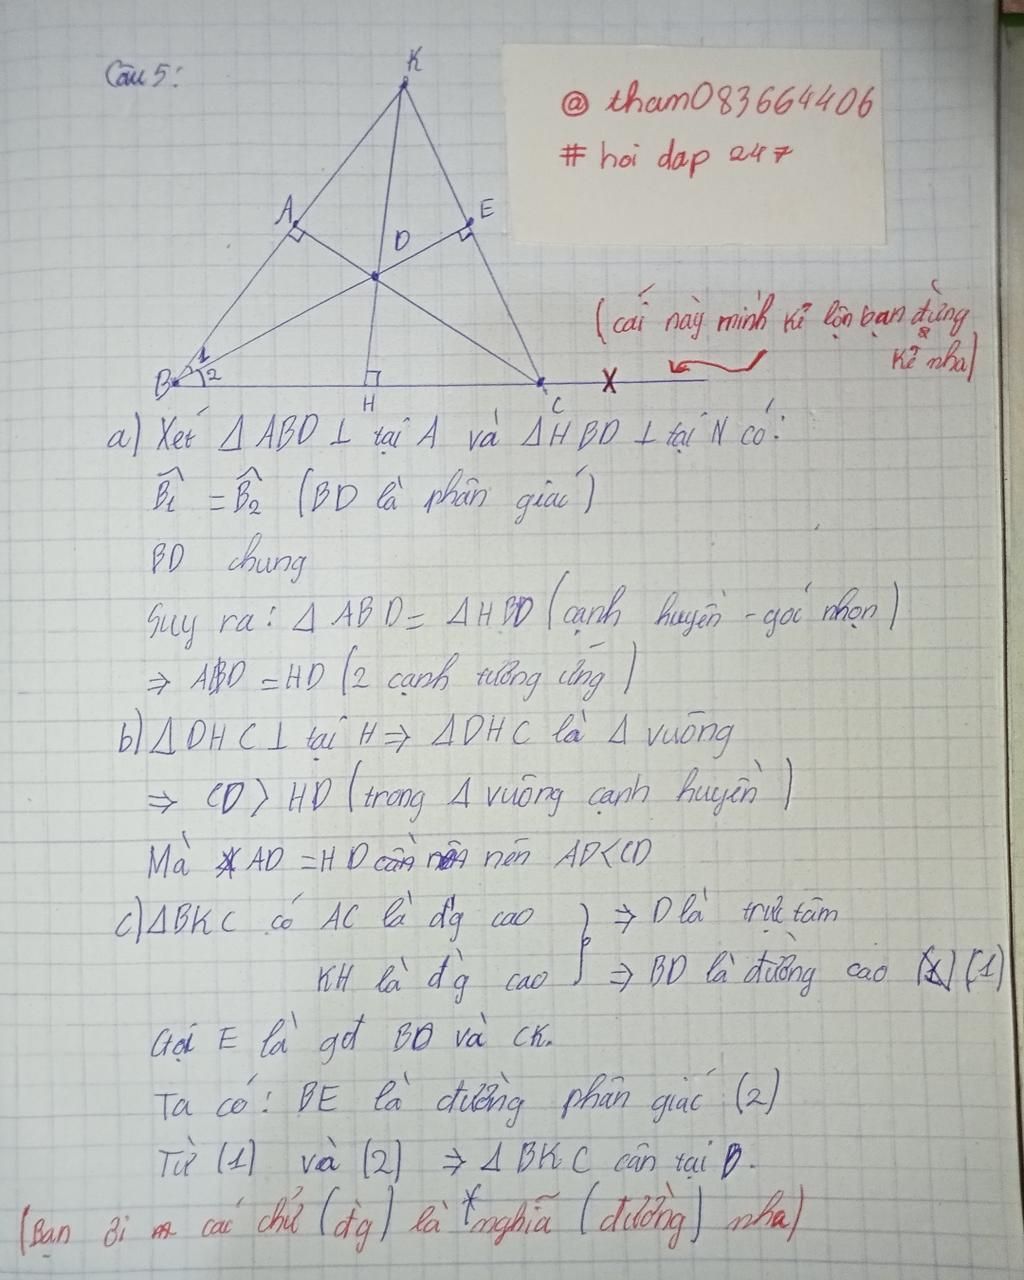 Câu 5:
K
@ tham083664406
# hoi dap 247
A
E
D
(cái này mình kẻ lộn bạn đừng
kẻ nha)
1
B
2
H
C
X
a) Xét Δ ABD ⊥ tại A và Δ HBD ⊥ tại N có:
B̂1 = B̂2 (BD là phân giác)
BD chung
Suy ra: Δ ABD = Δ HBD (cạnh huyền - góc nhọn)
⇒ AD = HD (2 cạnh tương ứng)
b) Δ DHC ⊥ tại H ⇒ Δ DHC là Δ vuông
⇒ CD > HD (trong Δ vuông cạnh huyền)
Mà AD = HD nên AD < CD
c) Δ BKC có AC là đg cao } ⇒ D là trực tâm
KH là đg cao } ⇒ BD là đường cao (1)
Gọi E là gđ BD và CK.
Ta có: BE là đường phân giác (2)
Từ (1) và (2) ⇒ Δ BKC cân tại B.
(Bạn ơi các chữ (đg) là nghĩa (đường) nha)